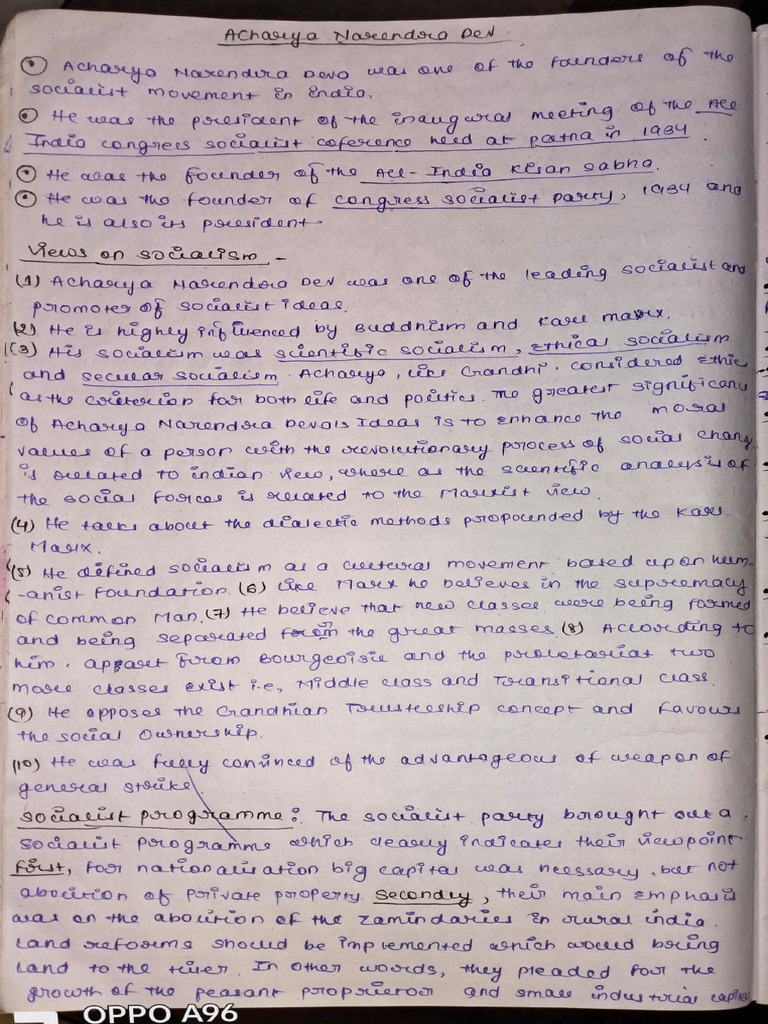 Acharya Narendra Dev.
Acharya Narendra Deva was one of the founders of the
socialist movement in India.
He was the president of the inaugural meeting of the All
India congress socialist coference held at patna in 1934.
He was the founder of the All-India Kisan Sabha.
He was the founder of congress socialist party, 1934 and
he is also its president.
Views on socialism -
(1) Acharya Narendra Dev was one of the leading socialist and
promoter of socialist ideas.
(2) He is highly influenced by Buddhism and Karl marx.
(3) His socialism was scientific socialism, Ethical socialism
and secular socialism. Acharya, like Gandhi. considered Ethics
as the criterion for both life and politics. The greatest significance
of Acharya Narendra Deva's Ideas is to enhance the moral
values of a person with the revolutionary process of social change
is related to indian view, where as the scientific analysis of
the social forces is related to the Marxist view.
(4) He talks about the dialectic methods propounded by the Karl
Marx.
(5) He defined socialism as a cultural movement based upon hum-
-anist foundation. (6) Like Marx he believes in the supremacy
of common Man. (7) He believe that new classes were being formed
and being separated from the great masses. (8) According to
him. appart from Bourgeoisie and the proletariat two
more classes exist i.e., Middle class and Transitional class.
(9) He opposes the Gandhian Trusteeship concept and favours
the social Ownership.
(10) He was fully convinced of the advantageous of weapon of
general strike.
Socialist programme: The socialist party brought out a
socialist programme which clearly indicates their viewpoint.
First, for nationalisation big capital was necessary, but not
abolition of private property. Secondly, their main emphasis
was on the abolition of the zamindaries in rural india.
Land reforms should be implemented which would bring
land to the tiller. In other words, they pleaded for the
growth of the peasant proprietor and small industrial capital
OPPO A96